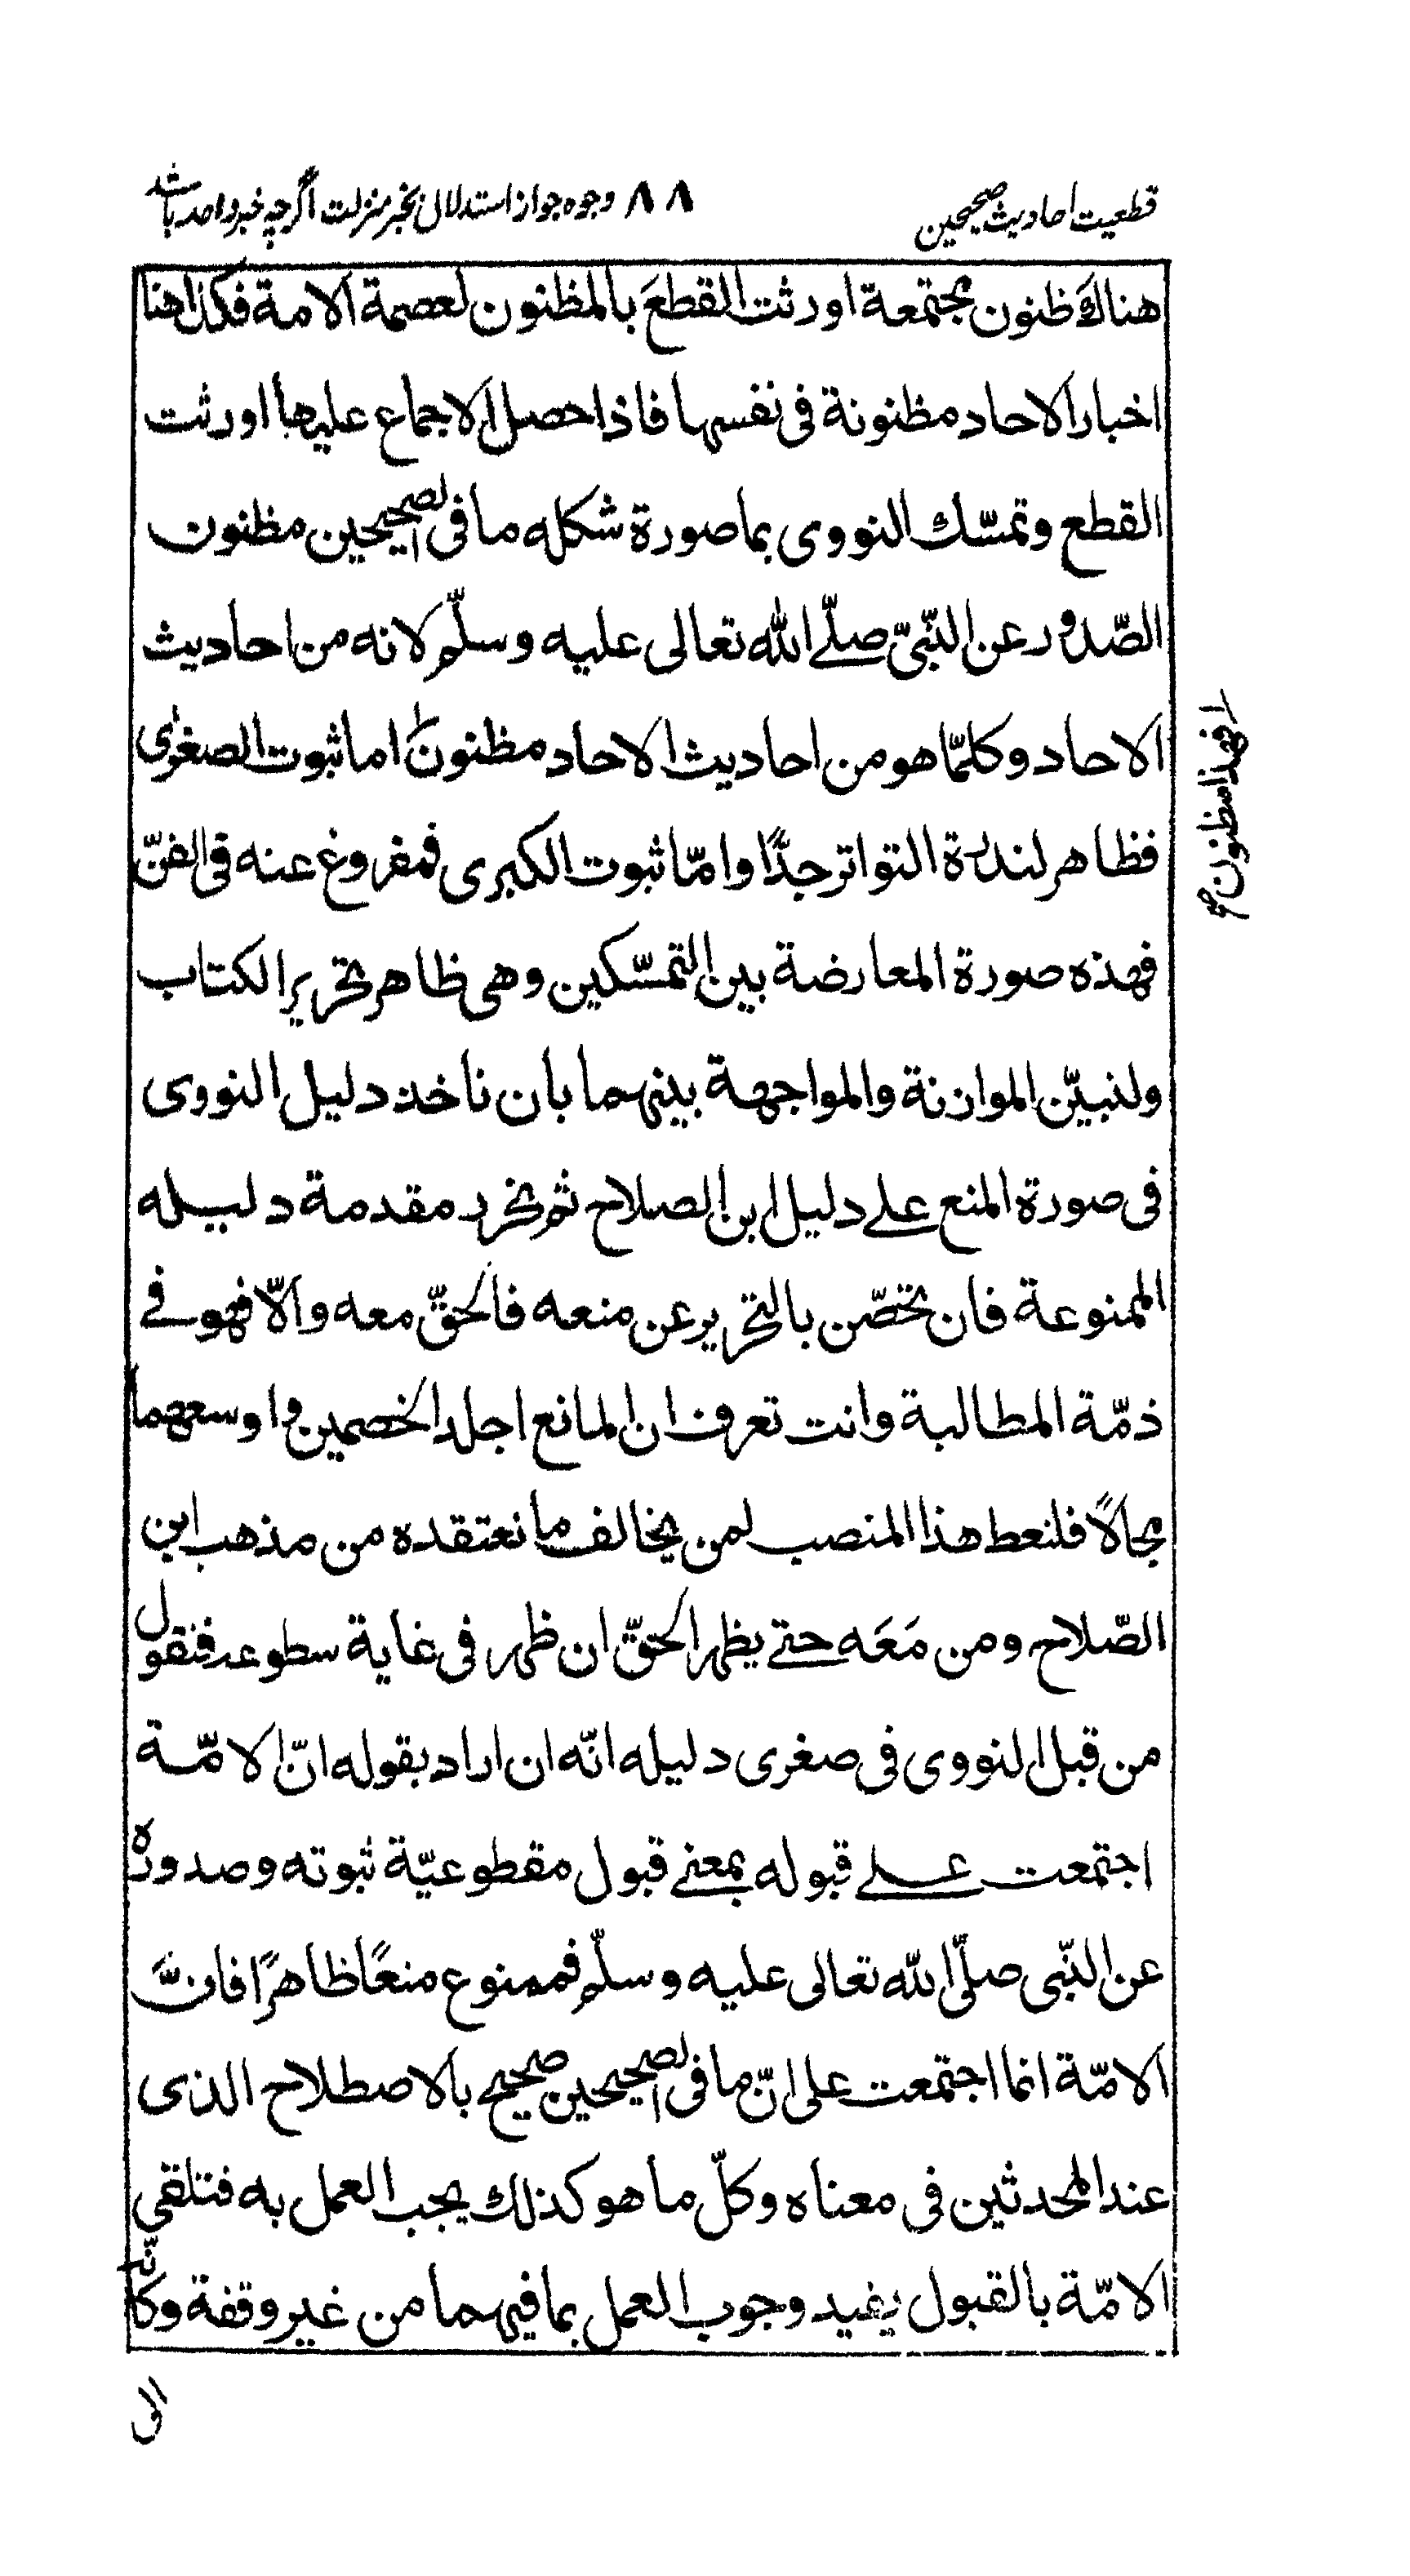 قطعیت احادیث صحیحین ٨٨ وجوه جواز استدلال بخبر منزلت اگرچه خبر واحد باشد
هناك ظنون مجتمعة اورثت القطعَ بالمظنون لعصمة الامة فكذا هنا
اخبار الاحاد مظنونة فى نفسها فاذا حصل الاجماع عليها اورثت
القطع وتمسّك النووى بما صورة شكله ما فى الصحيحين مظنون
الصّدور عن النّبىّ صلّے الله تعالى عليه وسلّم لانه من احاديث
الاحاد وكلّما هو من احاديث الاحاد مظنون اما ثبوت الصغرٰى
فظاهر لندرة التواتر جدًّا وامّا ثبوت الكبرى فمفروغ عنه فى الفنّ
فهذه صورة المعارضة بين التمسّكين وهى ظاهر تحرير الكتاب
ولنبيّن الموازنة والمواجهة بينهما بان ناخذ دليل النووى
فى صورة المنع علے دليل ابن الصلاح ثم نحرر مقدمة دليله
الممنوعة فان تحصّن بالتحرير عن منعه فالحقّ معه والّا فهو فے
ذمّة المطالبة وانت تعرف ان المانع اجلد الخصمين واوسعهما
مجالاً فلنعط هذا المنصب لمن يخالف ما نعتقده من مذهب ابن
الصّلاح ومن مَعَه حتے يظهر الحقّ ان ظهر فى غاية سطوعه فنقول
من قبل النووى فى صغرى دليله انّه ان اراد بقوله انّ الامّة
اجتمعت علے قبوله بمعنے قبول مقطوعيّة ثبوته وصدوره
عن النّبى صلّى الله تعالى عليه وسلّم فممنوع منعًا ظاهرًا فانَّ
الامّة انما اجتمعت على انّ ما فى الصحيحين صحيح بالاصطلاح الذى
عند المحدثين فى معناه وكلّ ما هو كذلك يجب العمل به فتلقي
الامّة بالقبول يفيد وجوب العمل بما فيهما من غير وقفة وكانّه
الى
فهذا مظنون